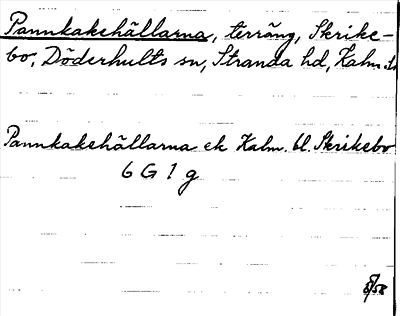 Pannkakehällarna, terräng, Skrike-
bo, Döderhults sn, Stranda hd, Kalm. l.
Pannkakehällarna ek Kalm. bl. Skrikebo
6 G 1 g